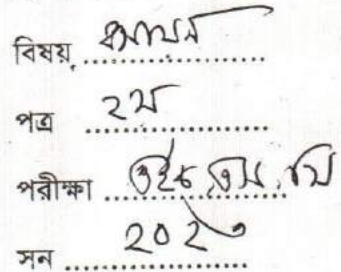 বিষয় রসায়ন
পত্র ২য়
পরীক্ষা এইচ এস সি
সন ২০২৩